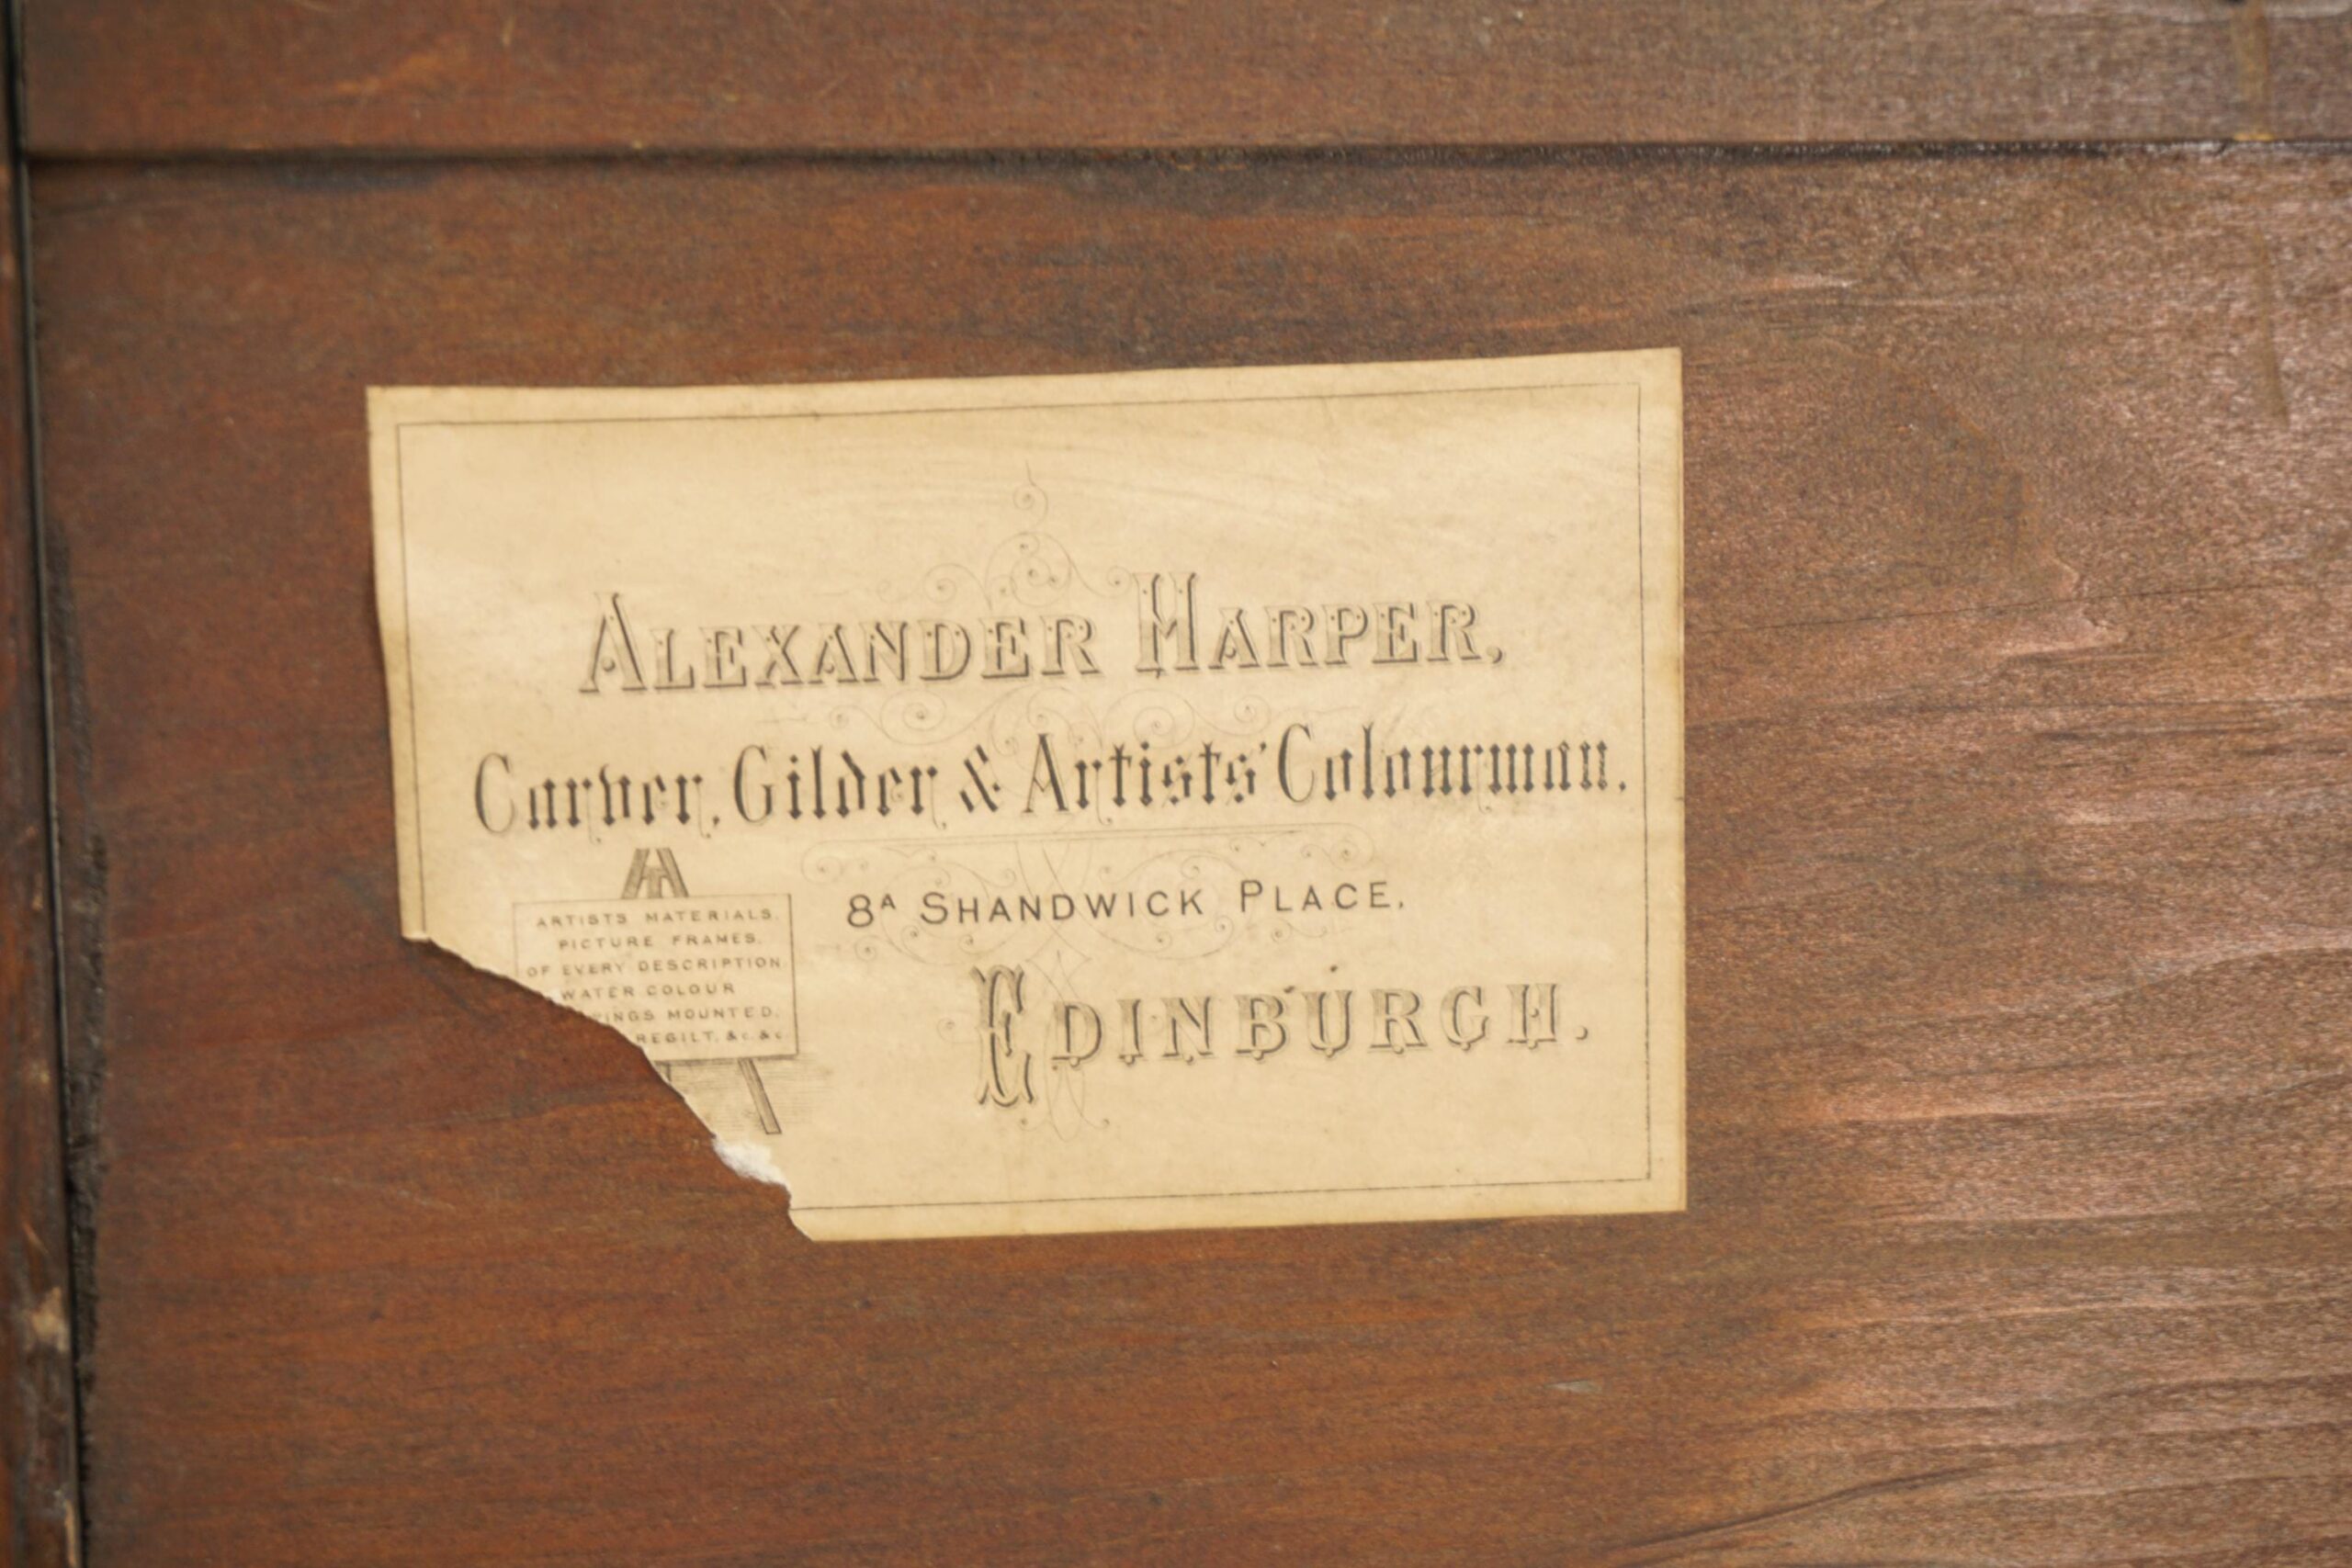 ALEXANDER HARPER,
Carver, Gilder & Artists' Colourman.
8A SHANDWICK PLACE,
EDINBURGH.
ARTISTS MATERIALS,
PICTURE FRAMES,
OF EVERY DESCRIPTION
WATER COLOUR
MOUNTED,
REGILT, &c &c